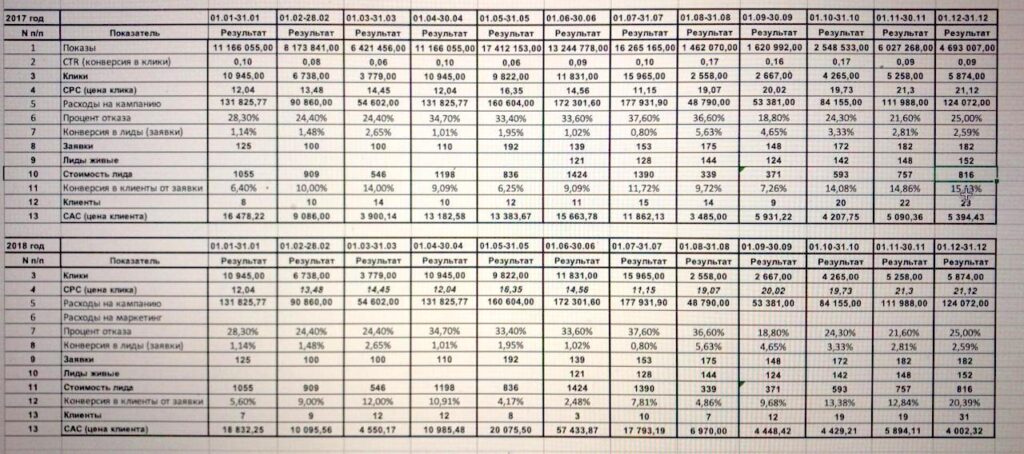 2017 год 01.01-31.01 01.02-28.02 01.03-31.03 01.04-30.04 01.05-31.05 01.06-30.06 01.07-31.07 01.08-31.08 01.09-30.09 01.10-31.10 01.11-30.11 01.12-31.12
N п/п Показатель Результат Результат Результат Результат Результат Результат Результат Результат Результат Результат Результат Результат
1 Показы 11 166 055,00 8 173 841,00 6 421 456,00 11 166 055,00 17 412 153,00 13 244 778,00 16 265 165,00 1 462 070,00 1 620 992,00 2 548 533,00 6 027 268,00 4 693 007,00
2 CTR (конверсия в клики) 0,10 0,08 0,06 0,10 0,06 0,09 0,10 0,17 0,16 0,17 0,09 0,09
3 Клики 10 945,00 6 738,00 3 779,00 10 945,00 9 822,00 11 831,00 15 965,00 2 558,00 2 667,00 4 265,00 5 258,00 5 874,00
4 CPC (цена клика) 12,04 13,48 14,45 12,04 16,35 14,56 11,15 19,07 20,02 19,73 21,3 21,12
5 Расходы на кампанию 131 825,77 90 860,00 54 602,00 131 825,77 160 604,00 172 301,60 177 931,90 48 790,00 53 381,00 84 155,00 111 988,00 124 072,00
6 Процент отказа 28,30% 24,40% 24,40% 34,70% 33,40% 33,60% 37,60% 36,60% 18,80% 24,30% 21,60% 25,00%
7 Конверсия в лиды (заявки) 1,14% 1,48% 2,65% 1,01% 1,95% 1,02% 0,80% 5,63% 4,65% 3,33% 2,81% 2,59%
8 Заявки 125 100 100 110 192 139 153 175 148 172 182 182
9 Лиды живые 121 128 144 124 142 148 152
10 Стоимость лида 1055 909 546 1198 836 1424 1390 339 371 593 757 816
11 Конверсия в клиенты от заявки 6,40% 10,00% 14,00% 9,09% 6,25% 9,09% 11,72% 9,72% 7,26% 14,08% 14,86%
12 Клиенты 8 10 14 10 12 11 15 14 9 20 22 23
13 CAC (цена клиента) 16 478,22 9 086,00 3 900,14 13 182,58 13 383,67 15 663,78 11 862,13 3 485,00 5 931,22 4 207,75 5 090,36 5 394,43
2018 год 01.01-31.01 01.02-28.02 01.03-31.03 01.04-30.04 01.05-31.05 01.06-30.06 01.07-31.07 01.08-31.08 01.09-30.09 01.10-31.10 01.11-30.11 01.12-31.12
N п/п Показатель Результат Результат Результат Результат Результат Результат Результат Результат Результат Результат Результат Результат
3 Клики 10 945,00 6 738,00 3 779,00 10 945,00 9 822,00 11 831,00 15 965,00 2 558,00 2 667,00 4 265,00 5 258,00 5 874,00
4 CPC (цена клика) 12,04 13,48 14,45 12,04 16,35 14,56 11,15 19,07 20,02 19,73 21,3 21,12
5 Расходы на кампанию 131 825,77 90 860,00 54 602,00 131 825,77 160 604,00 172 301,60 177 931,90 48 790,00 53 381,00 84 155,00 111 988,00 124 072,00
6 Расходы на маркетинг
7 Процент отказа 28,30% 24,40% 24,40% 34,70% 33,40% 33,60% 37,60% 36,60% 18,80% 24,30% 21,60% 25,00%
8 Конверсия в лиды (заявки) 1,14% 1,48% 2,65% 1,01% 1,95% 1,02% 0,80% 5,63% 4,65% 3,33% 2,81% 2,59%
9 Заявки 125 100 100 110 192 139 153 175 148 172 182 182
10 Лиды живые 121 128 144 124 142 148 152
11 Стоимость лида 1055 909 546 1198 836 1424 1390 339 371 593 757 816
12 Конверсия в клиенты от заявки 5,60% 9,00% 12,00% 10,91% 4,17% 2,48% 7,81% 4,86% 9,68% 13,38% 12,84% 20,39%
13 Клиенты 7 9 12 12 8 3 10 7 12 19 19 31
13 CAC (цена клиента) 18 832,25 10 095,56 4 550,17 10 985,48 20 075,50 57 433,87 17 793,19 6 970,00 4 448,42 4 429,21 5 894,11 4 002,32